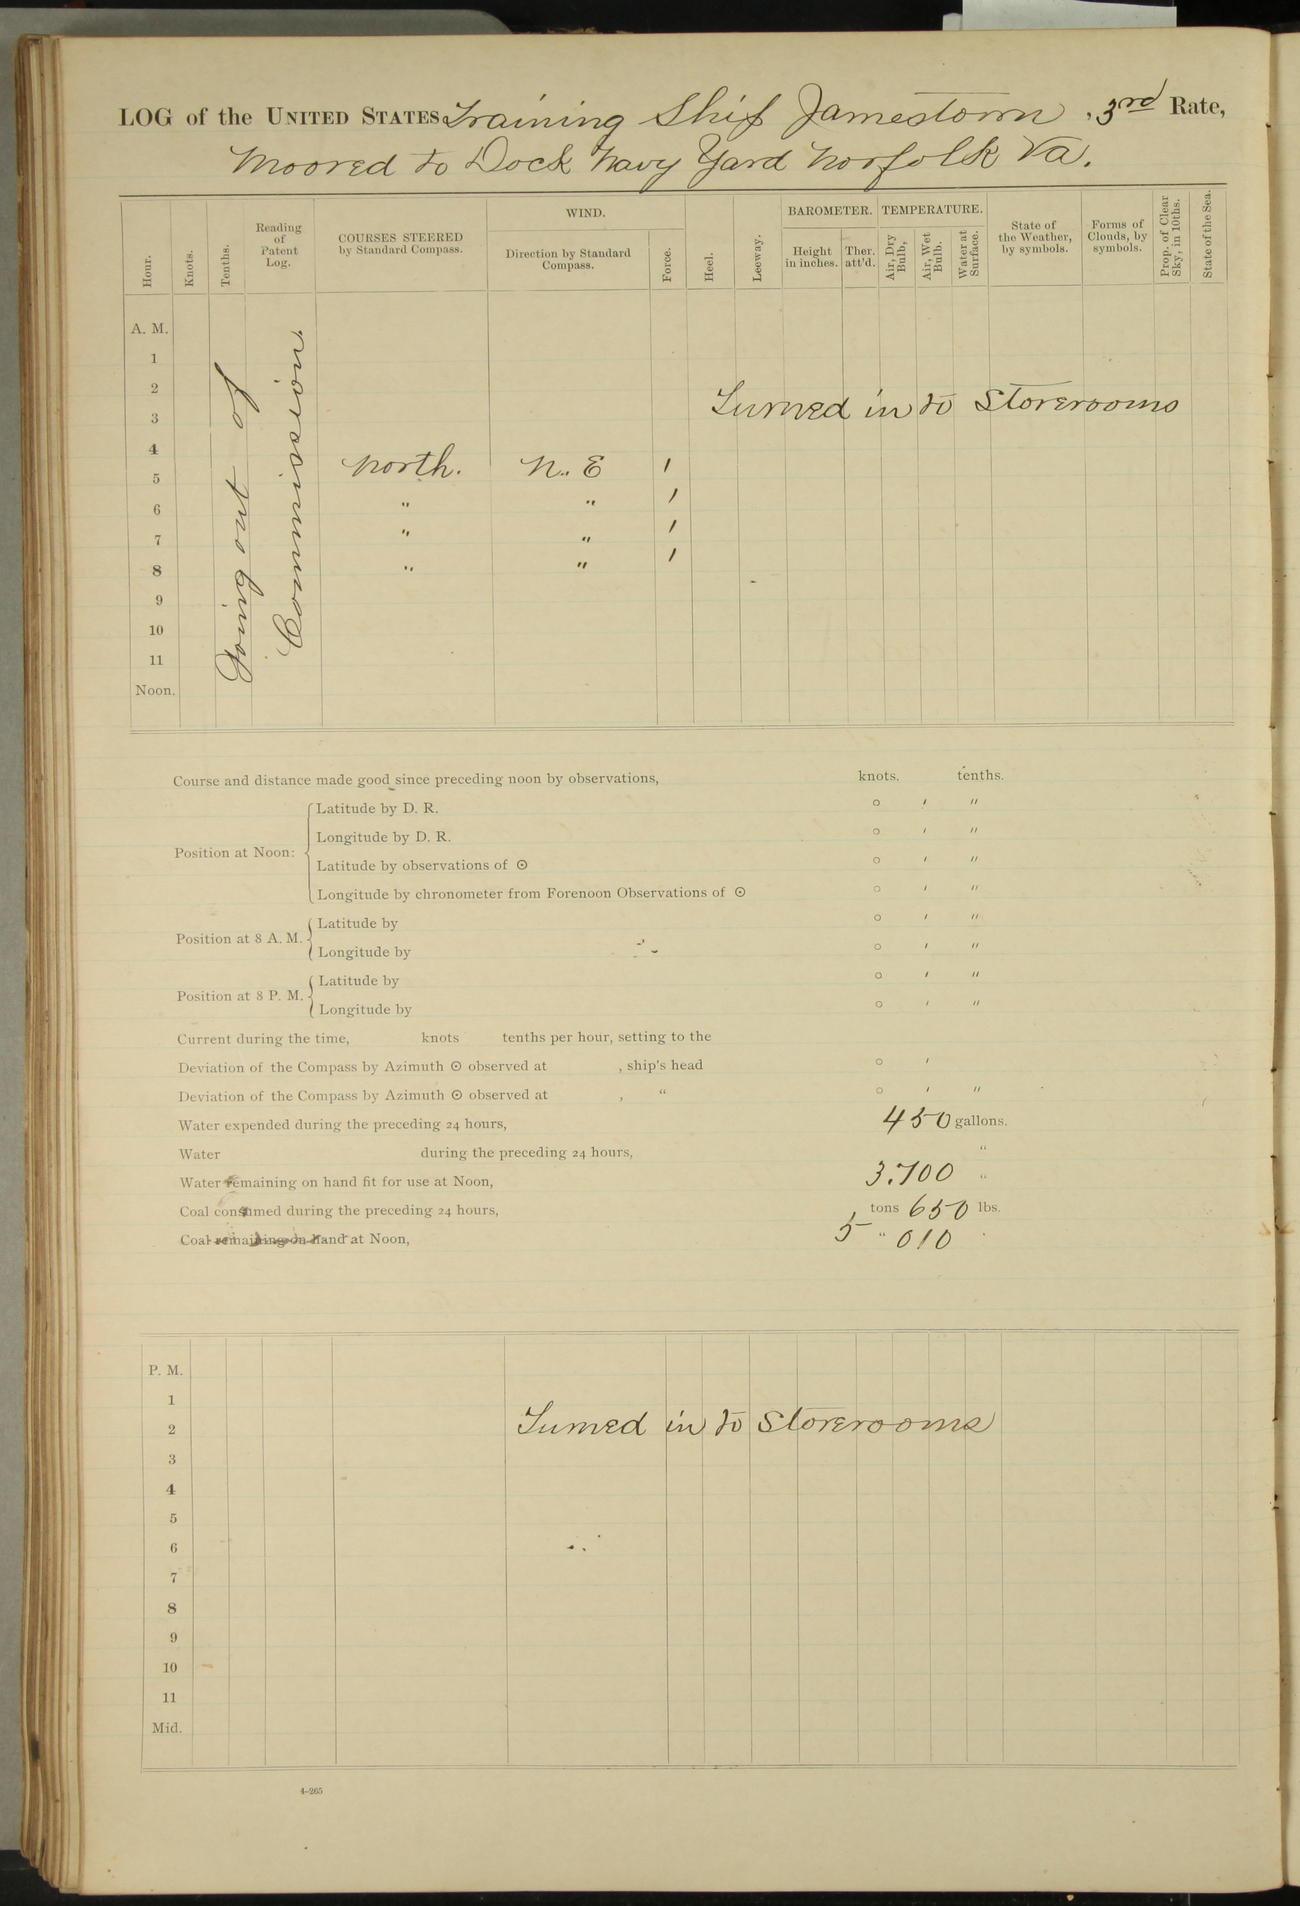 LOG of the UNITED STATES Training Ship Jamestown, 3rd Rate,
Moored to Dock Navy Yard Norfolk Va.
Hour.
Knots.
Tenths.
Reading of Patent Log.
COURSES STEERED by Standard Compass.
WIND.
Direction by Standard Compass.
Force.
Heel.
Leeway.
BAROMETER.
Height in inches.
Ther. att'd.
TEMPERATURE.
Air, Dry Bulb,
Air, Wet Bulb.
Water at Surface.
State of the Weather, by symbols.
Forms of Clouds, by symbols.
Prop. of Clear Sky, in 10ths.
State of the Sea.
A. M.
1
2
Turned in to Storerooms
3
4
North. N. E 1
5
" " 1
6
" " 1
7
" " 1
8
9
10
11
Noon.
Going out of
Commission.
Course and distance made good since preceding noon by observations, knots. tenths.
Position at Noon:
Latitude by D. R. ° ′ ″
Longitude by D. R. ° ′ ″
Latitude by observations of ☉ ° ′ ″
Longitude by chronometer from Forenoon Observations of ☉ ° ′ ″
Position at 8 A. M.
Latitude by ° ′ ″
Longitude by ° ′ ″
Position at 8 P. M.
Latitude by ° ′ ″
Longitude by ° ′ ″
Current during the time, knots tenths per hour, setting to the
Deviation of the Compass by Azimuth ☉ observed at , ship's head ° ′
Deviation of the Compass by Azimuth ☉ observed at , “ ° ′ ″
Water expended during the preceding 24 hours, 450 gallons.
Water during the preceding 24 hours, “
Water remaining on hand fit for use at Noon, 3.700 “
Coal consumed during the preceding 24 hours, , tons 650 lbs.
Coal remaining on hand at Noon, 5 “ 010
P. M.
1
2
Turned in to Storerooms
3
4
5
6
7
8
9
10
11
Mid.
4-265